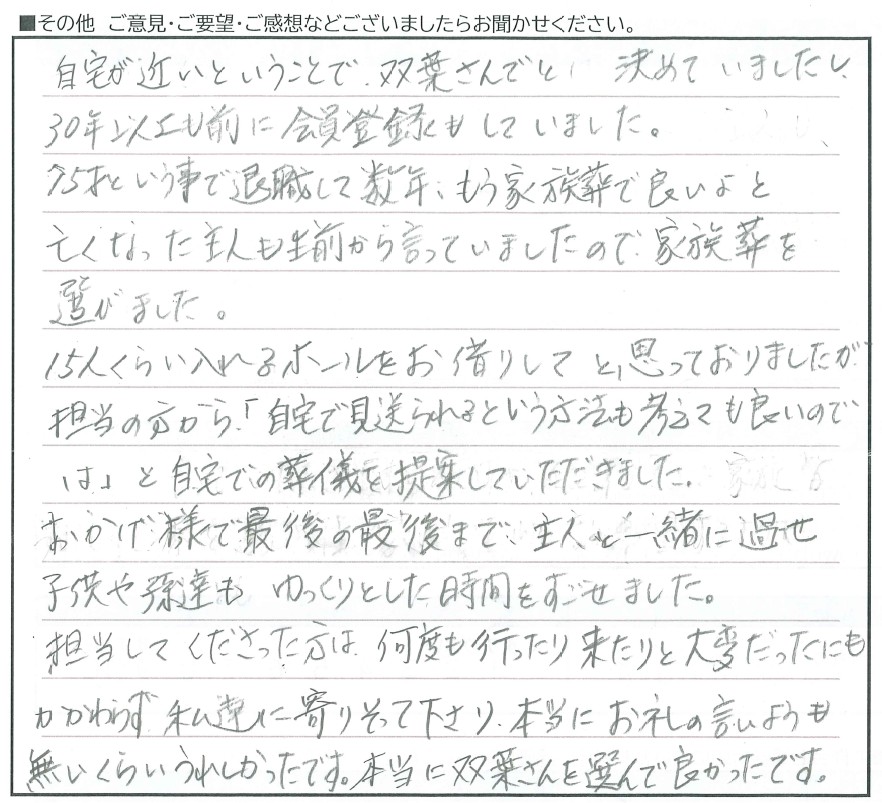 ■その他 ご意見・ご要望・ご感想などございましたらお聞かせください。
自宅が近いということで、双葉さんでと 決めていましたし、
30年以上も前に会員登録もしていました。
75才という事で退職して数年、もう家族葬で良いよと
亡くなった主人も生前から言っていましたので、家族葬を
選びました。
15人くらい入れるホールをお借りしてと、思っておりましたが
担当の方から、「自宅で見送られるという方法も考えても良いので
は」と自宅での葬儀を提案していただきました。
おかげ様で最後の最後まで、主人と一緒に過せ
子供や孫達も ゆっくりとした時間をすごせました。
担当してくださった方は、何度も行ったり来たりと大変だったにも
かかわらず 私達に寄りそって下さり、本当にお礼の言いようも
無いくらいうれしかったです。本当に双葉さんを選んで良かったです。